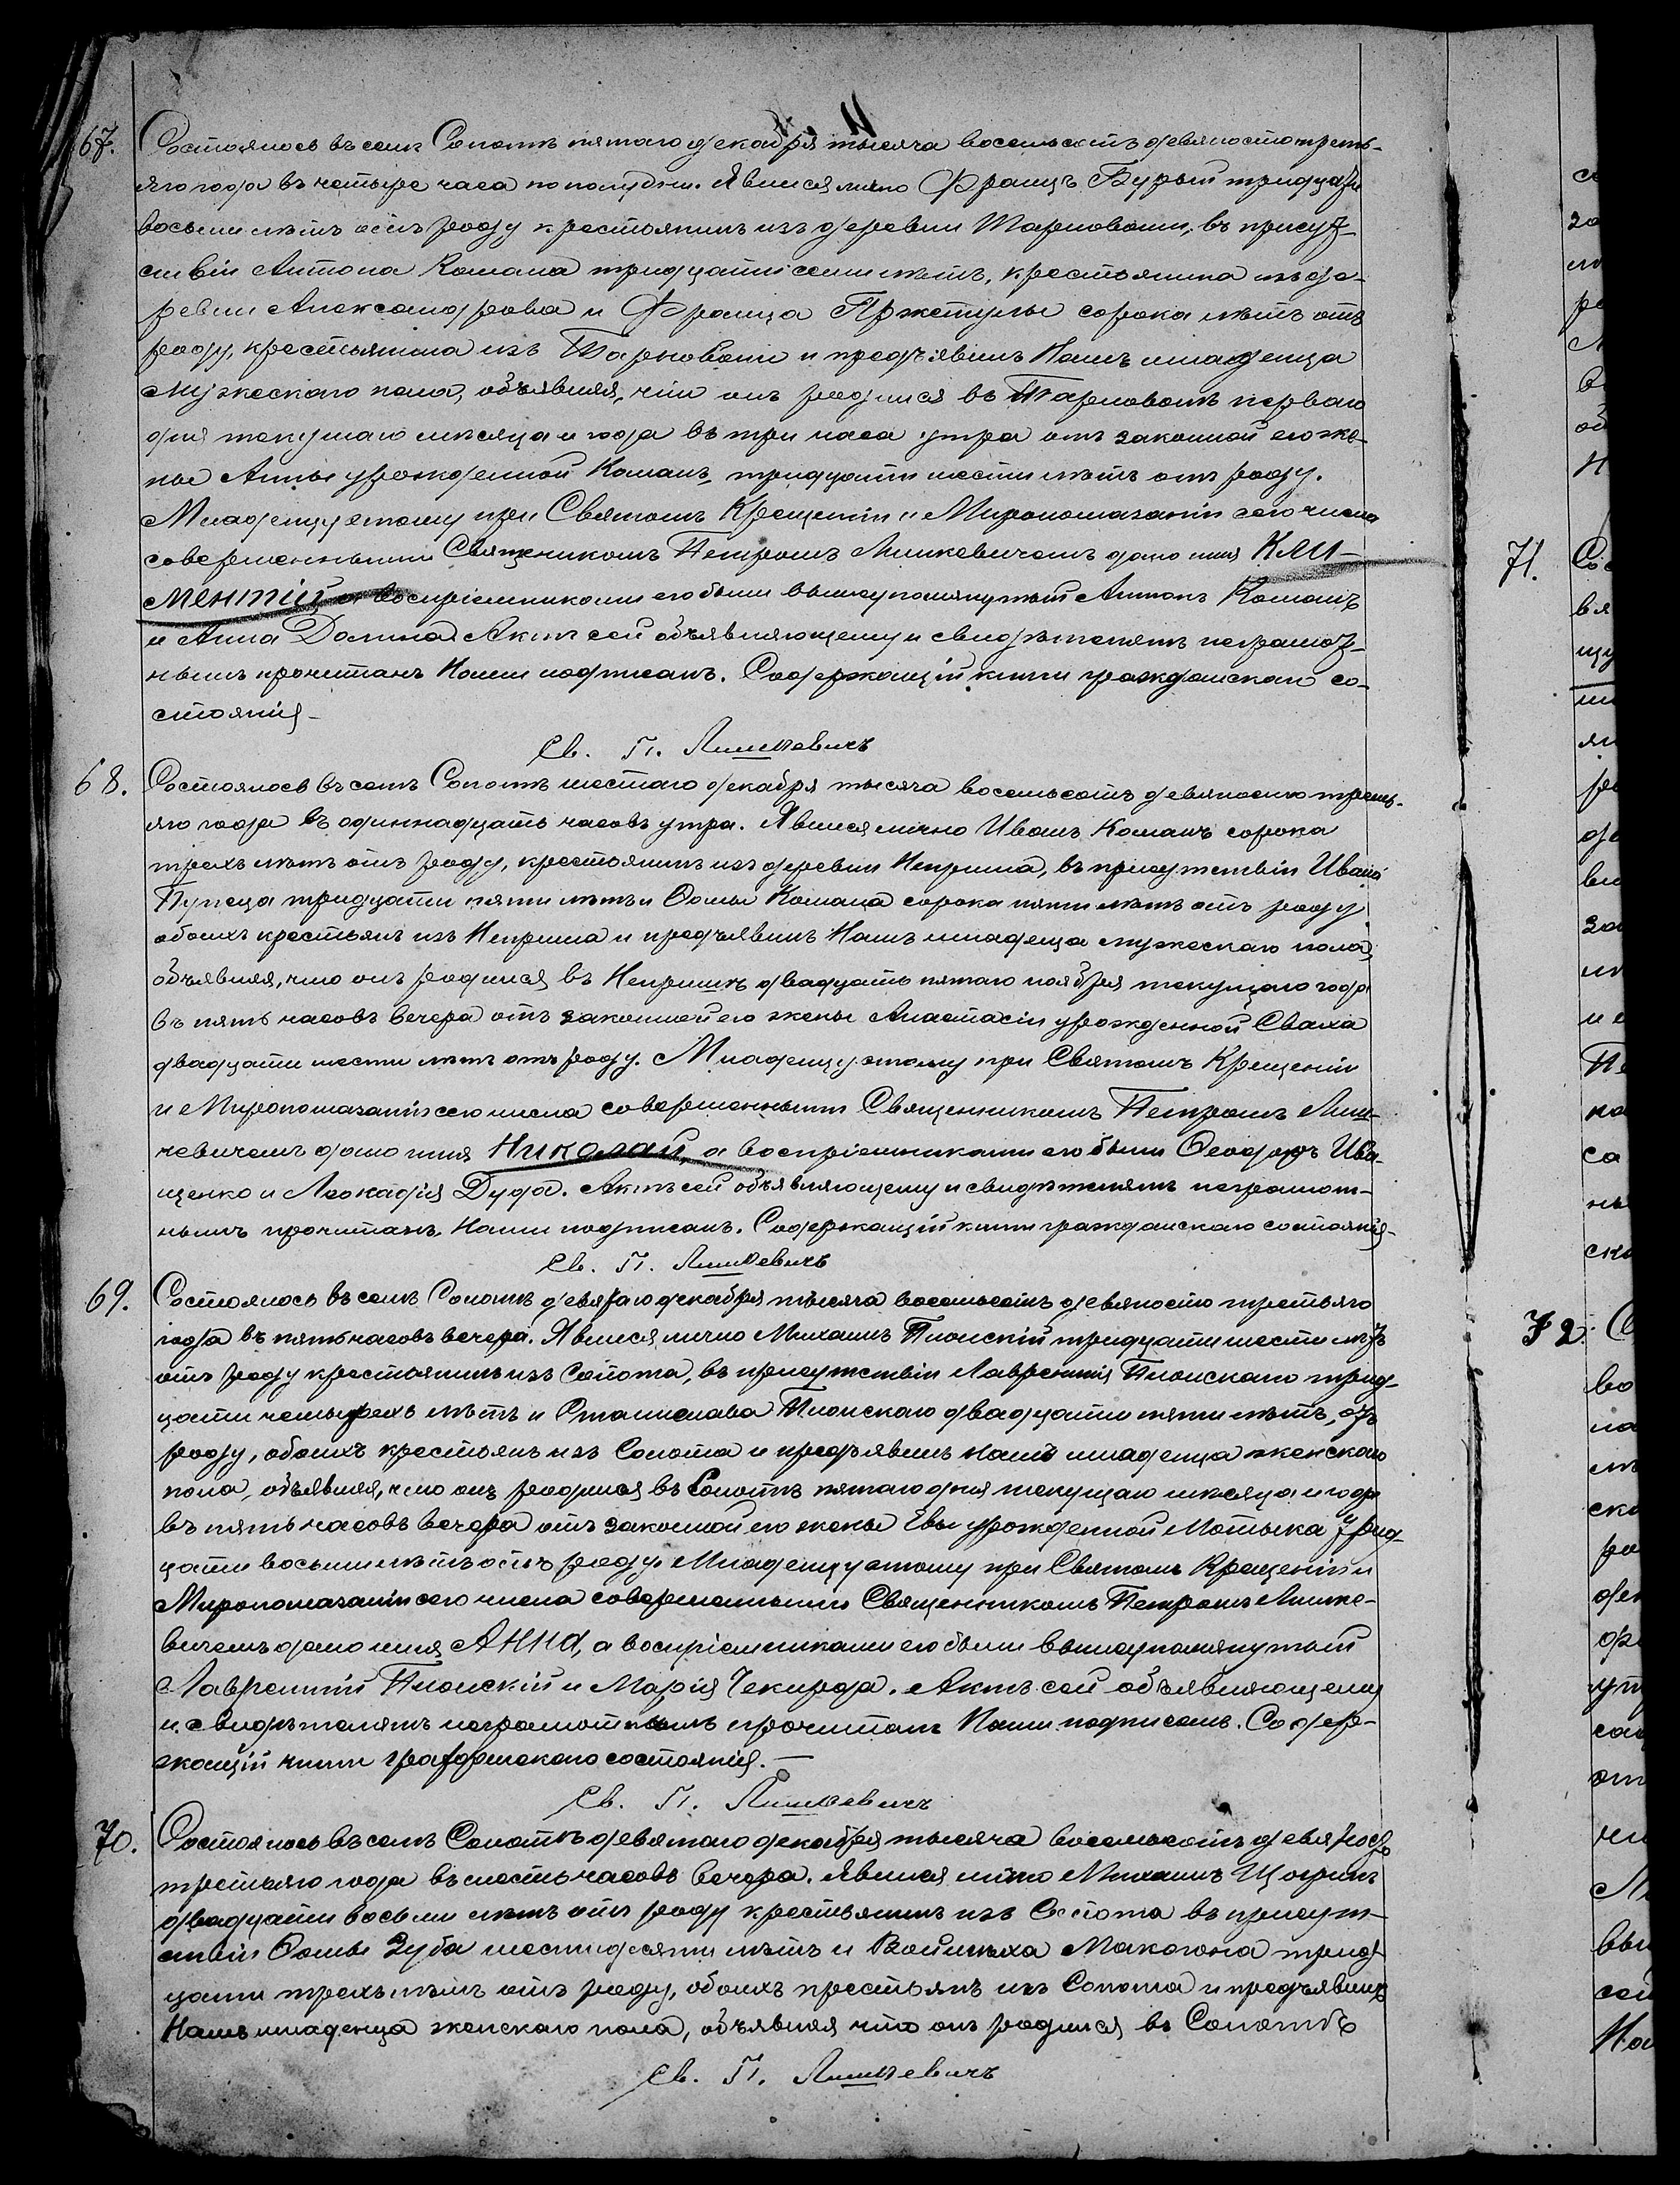 67. Состоялось въ селѣ Сопотѣ пятаго декабря тысяча восемьсотъ девяносто треть-
яго года въ четыре часа пополудни. Явился лично Францъ Бурый тридцати
восьми лѣтъ отъ роду крестьянинъ изъ деревни Тарноватки, въ присут-
ствіи Антона Комана тридцати семи лѣтъ, крестьянина изъ де-
ревни Александрова и Франца Пржетулы сорока лѣтъ отъ
роду, крестьянина изъ и предъявилъ Намъ младенца
мужескаго пола, объявляя, что онъ родился въ перваго
дня текущаго мѣсяца и года въ три часа утра отъ законной его же-
ны Анны урожденной Команъ, тридцати шести лѣтъ отъ роду.
Младенцу этому при Святомъ Крещеніи и Миропомазаніи сего числа
совершенными Священникомъ Петромъ Лишкевичемъ дано имя Кли-
ментій, а воспріемниками его были вышеупомянутый Антонъ Команъ
и Анна Долина. Актъ сей объявляющему и свидѣтелямъ неграмот-
нымъ прочитанъ Нами подписанъ. Содержащій книги гражданскаго со-
стоянія
Св. П. Лишкевичъ
68. Состоялось въ селѣ Сопотѣ шестаго декабря тысяча восемьсотъ девяносто треть-
яго года въ одиннадцать часовъ утра. Явился лично Иванъ Команъ сорока
трехъ лѣтъ отъ роду, крестьянинъ изъ деревни Неприша, въ присутствіи Ивана
Пупеца тридцати пяти лѣтъ и Ѳомы Комана сорока пяти лѣтъ отъ роду
обоихъ крестьянъ изъ Неприша и предъявилъ Намъ младенца мужескаго пола,
объявляя, что онъ родился въ Непришѣ двадцать пятаго ноября текущаго года
въ пять часовъ вечера отъ законной его жены Анастасіи урожденной Сваха
двадцати шести лѣтъ отъ роду. Младенцу этому при Святомъ Крещеніи
и Миропомазаніи сего числа совершенными Священникомъ Петромъ Лиш-
кевичемъ дано имя Николай, а воспріемниками его были Ѳеодоръ Ива-
щенко и Леокадія Дуда. Актъ сей объявляющему и свидѣтелямъ неграмот-
нымъ прочитанъ Нами подписанъ. Содержащій книги гражданскаго состоянія
Св. П. Лишкевичъ
69. Состоялось въ селѣ Сопотѣ девятаго декабря тысяча восемьсотъ девяносто третьяго
года въ пять часовъ вечера. Явился лично Михаилъ Піонскій тридцати шести лѣтъ
отъ роду крестьянинъ изъ Сопота, въ присутствіи Лаврентія Піонскаго трид-
цати четырехъ лѣтъ и Станислава Піонскаго двадцати пяти лѣтъ отъ
роду, обоихъ крестьянъ изъ Сопота и предъявилъ Намъ младенца женскаго
пола, объявляя, что онъ родился въ Сопотѣ пятаго дня текущаго мѣсяца и года
въ пять часовъ вечера отъ законной его жены Евы урожденной Мотыка трид-
цати восьми лѣтъ отъ роду. Младенцу этому при Святомъ Крещеніи и
Миропомазаніи сего числа совершенными Священникомъ Петромъ Лишке-
вичемъ дано имя Анна, а воспріемниками его были вышеупомянутый
Лаврентій Піонскій и Марія Чекирда. Актъ сей объявляющему
и свидѣтелямъ неграмотнымъ прочитанъ Нами подписанъ. Содер-
жащій книги гражданскаго состоянія.
Св. П. Лишкевичъ
70. Состоялось въ селѣ Сопотѣ девятаго декабря тысяча восемьсотъ девяносто
третьяго года въ шесть часовъ вечера. Явился лично Михаилъ
двадцати восьми лѣтъ отъ роду крестьянинъ изъ Сопота въ присут-
ствіи Ѳомы Зуба шестидесяти лѣтъ и Войцѣха Макогона трид-
цати трехъ лѣтъ отъ роду, обоихъ крестьянъ изъ Сопота и предъявилъ
Намъ младенца женскаго пола, объявляя что онъ родился въ Сопотѣ
Св. П. Лишкевичъ
71.
72.